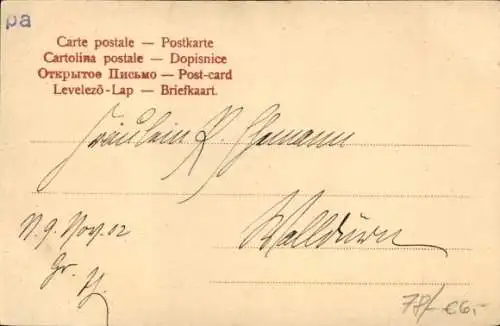 pa
Carte postale — Postkarte
Cartolina postale — Dopisnice
Открытое Письмо — Post-card
Levelező-Lap — Briefkaart.
Fräulein K. Ehemann
Walldürn
N. 9. Nov. 02
Gr.
78/ €6,-